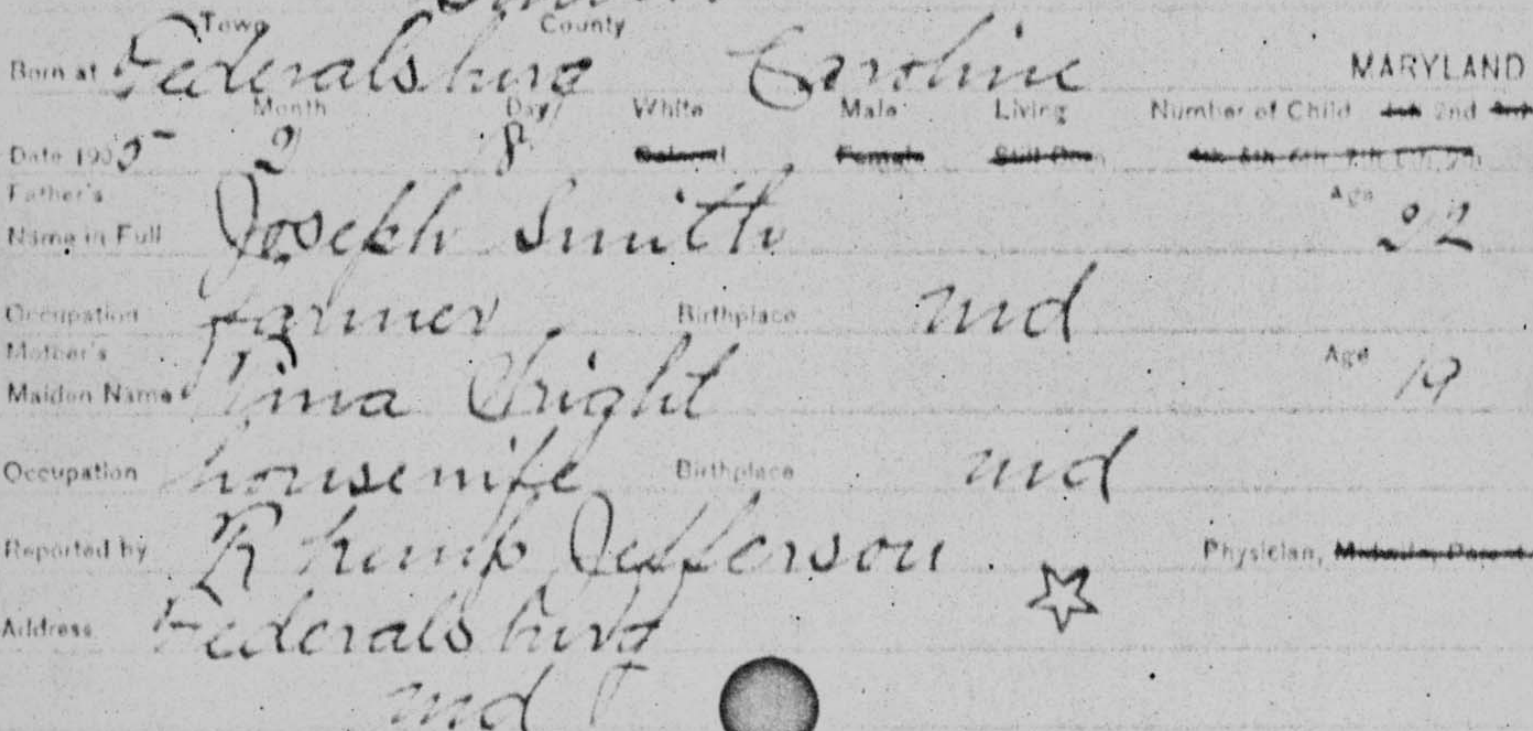 Town County
Born at Federalsburg Caroline MARYLAND
Month Day White Male Living Number of Child 1st 2nd 3rd
Date 1905 2 8 Colored Female Still Born 4th 5th 6th 7th 8th 9th
Father's Age
Name in Full Joseph Smith 22
Occupation farmer. Birthplace md
Mother's Age
Maiden Name Wright 19
Occupation housewife Birthplace md
Reported by R Kemp Jefferson. Physician, Midwife, Parent
Address Federalsburg
md